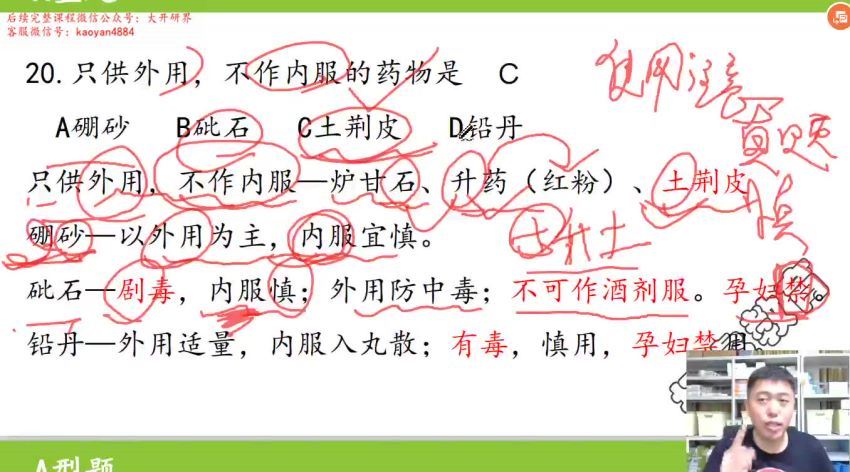 后续完整课程微信公众号：大开研界
客服微信号：kaoyan4884
20.只供外用，不作内服的药物是 C
A硼砂 B砒石 C土荆皮 D铅丹
只供外用，不作内服—炉甘石、升药（红粉）、土荆皮
硼砂—以外用为主，内服宜慎。
砒石—剧毒，内服慎；外用防中毒；不可作酒剂服。孕妇禁
铅丹—外用适量，内服入丸散；有毒，慎用，孕妇禁用
使用注意
真题
慎用
A型题